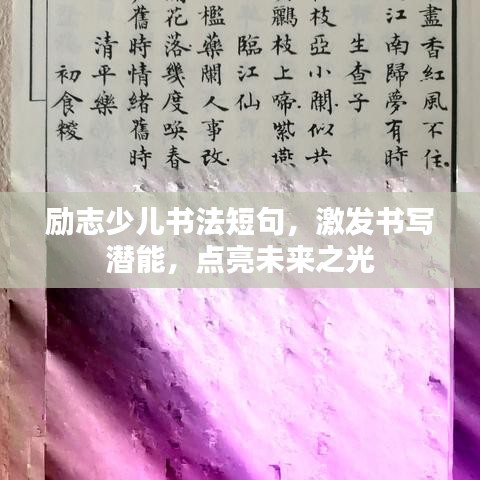 盡香紅風不住
江南歸夢有時
生查子
枝亞小闌似共
鸝枝上啼紫燕
臨江仙
檻藥闌人事改
花落幾度喚春
舊時情緒舊時
清平樂
初食糉
励志少儿书法短句，激发书写
潜能，点亮未来之光